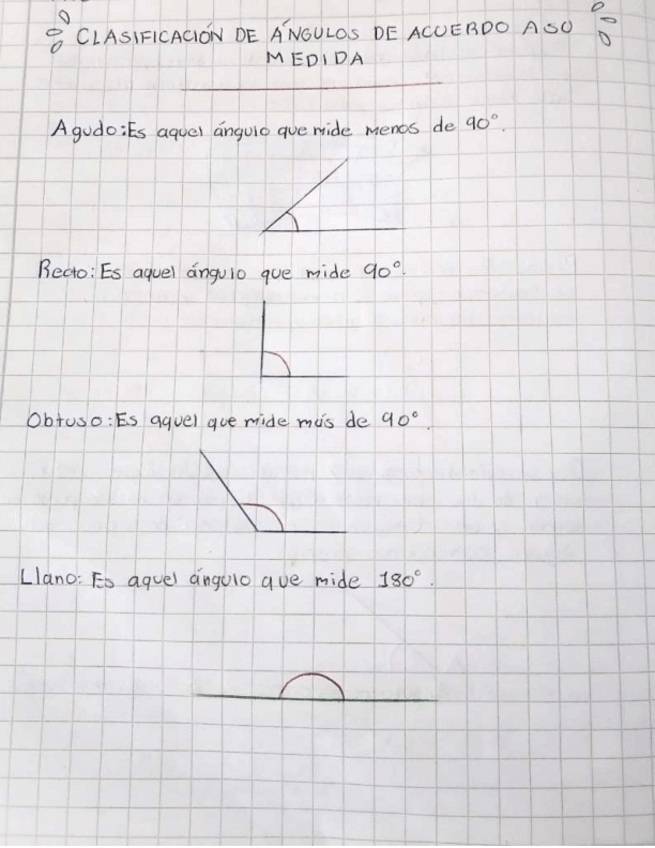 CLASIFICACIÓN DE ÁNGULOS DE ACUERDO A SU
MEDIDA
Agudo: Es aquel ángulo que mide menos de 90°.
Recto: Es aquel ángulo que mide 90°.
Obtuso: Es aquel que mide más de 90°.
Llano: Es aquel ángulo que mide 180°.